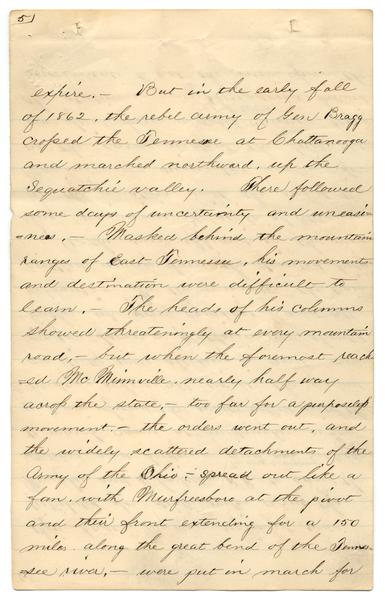 5)
expire. – But in the early fall
of 1862, the rebel army of Gen Bragg
crossed the Tennessee at Chattanooga
and marched northward, up the
Sequatchie valley. There followed
some days of uncertainty and uneasi-
=ness. – Masked behind the mountain
ranges of East Tennessee, his movements
and destination were difficult to
learn. – The heads of his columns
showed threateningly at every mountain
road, – but when the foremost reach-
=ed McMinnville, nearly half way
across the state, – too far for a purposeless
movement. – the orders went out, and
the widely scattered detachments of the
Army of the Ohio, – spread out like a
fan, with Murfreesboro at the pivot
and their front extending for a 150
miles along the great bend of the Tennes-
-see river, – were put in march for